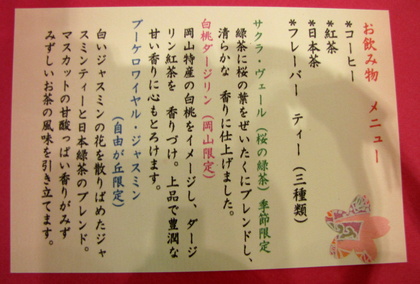 お飲み物 メニュー
*コーヒー
*紅茶
*日本茶
*フレーバー ティー(三種類)
サクラ・ヴェール(桜の緑茶)季節限定
緑茶に桜の葉をぜいたくにブレンドし、
清らかな 香りに仕上げました。
白桃ダージリン(岡山限定)
岡山特産の白桃をイメージし、ダージ
リン紅茶を 香りづけ。上品で豊潤な
甘い香りに心もとろけます。
ブーケロワイヤル・ジャスミン
(自由が丘限定)
白いジャスミンの花を散りばめたジャ
スミンティーと日本緑茶のブレンド。
マスカットの甘酸っぱい香りがみず
みずしいお茶の風味を引き立てます。